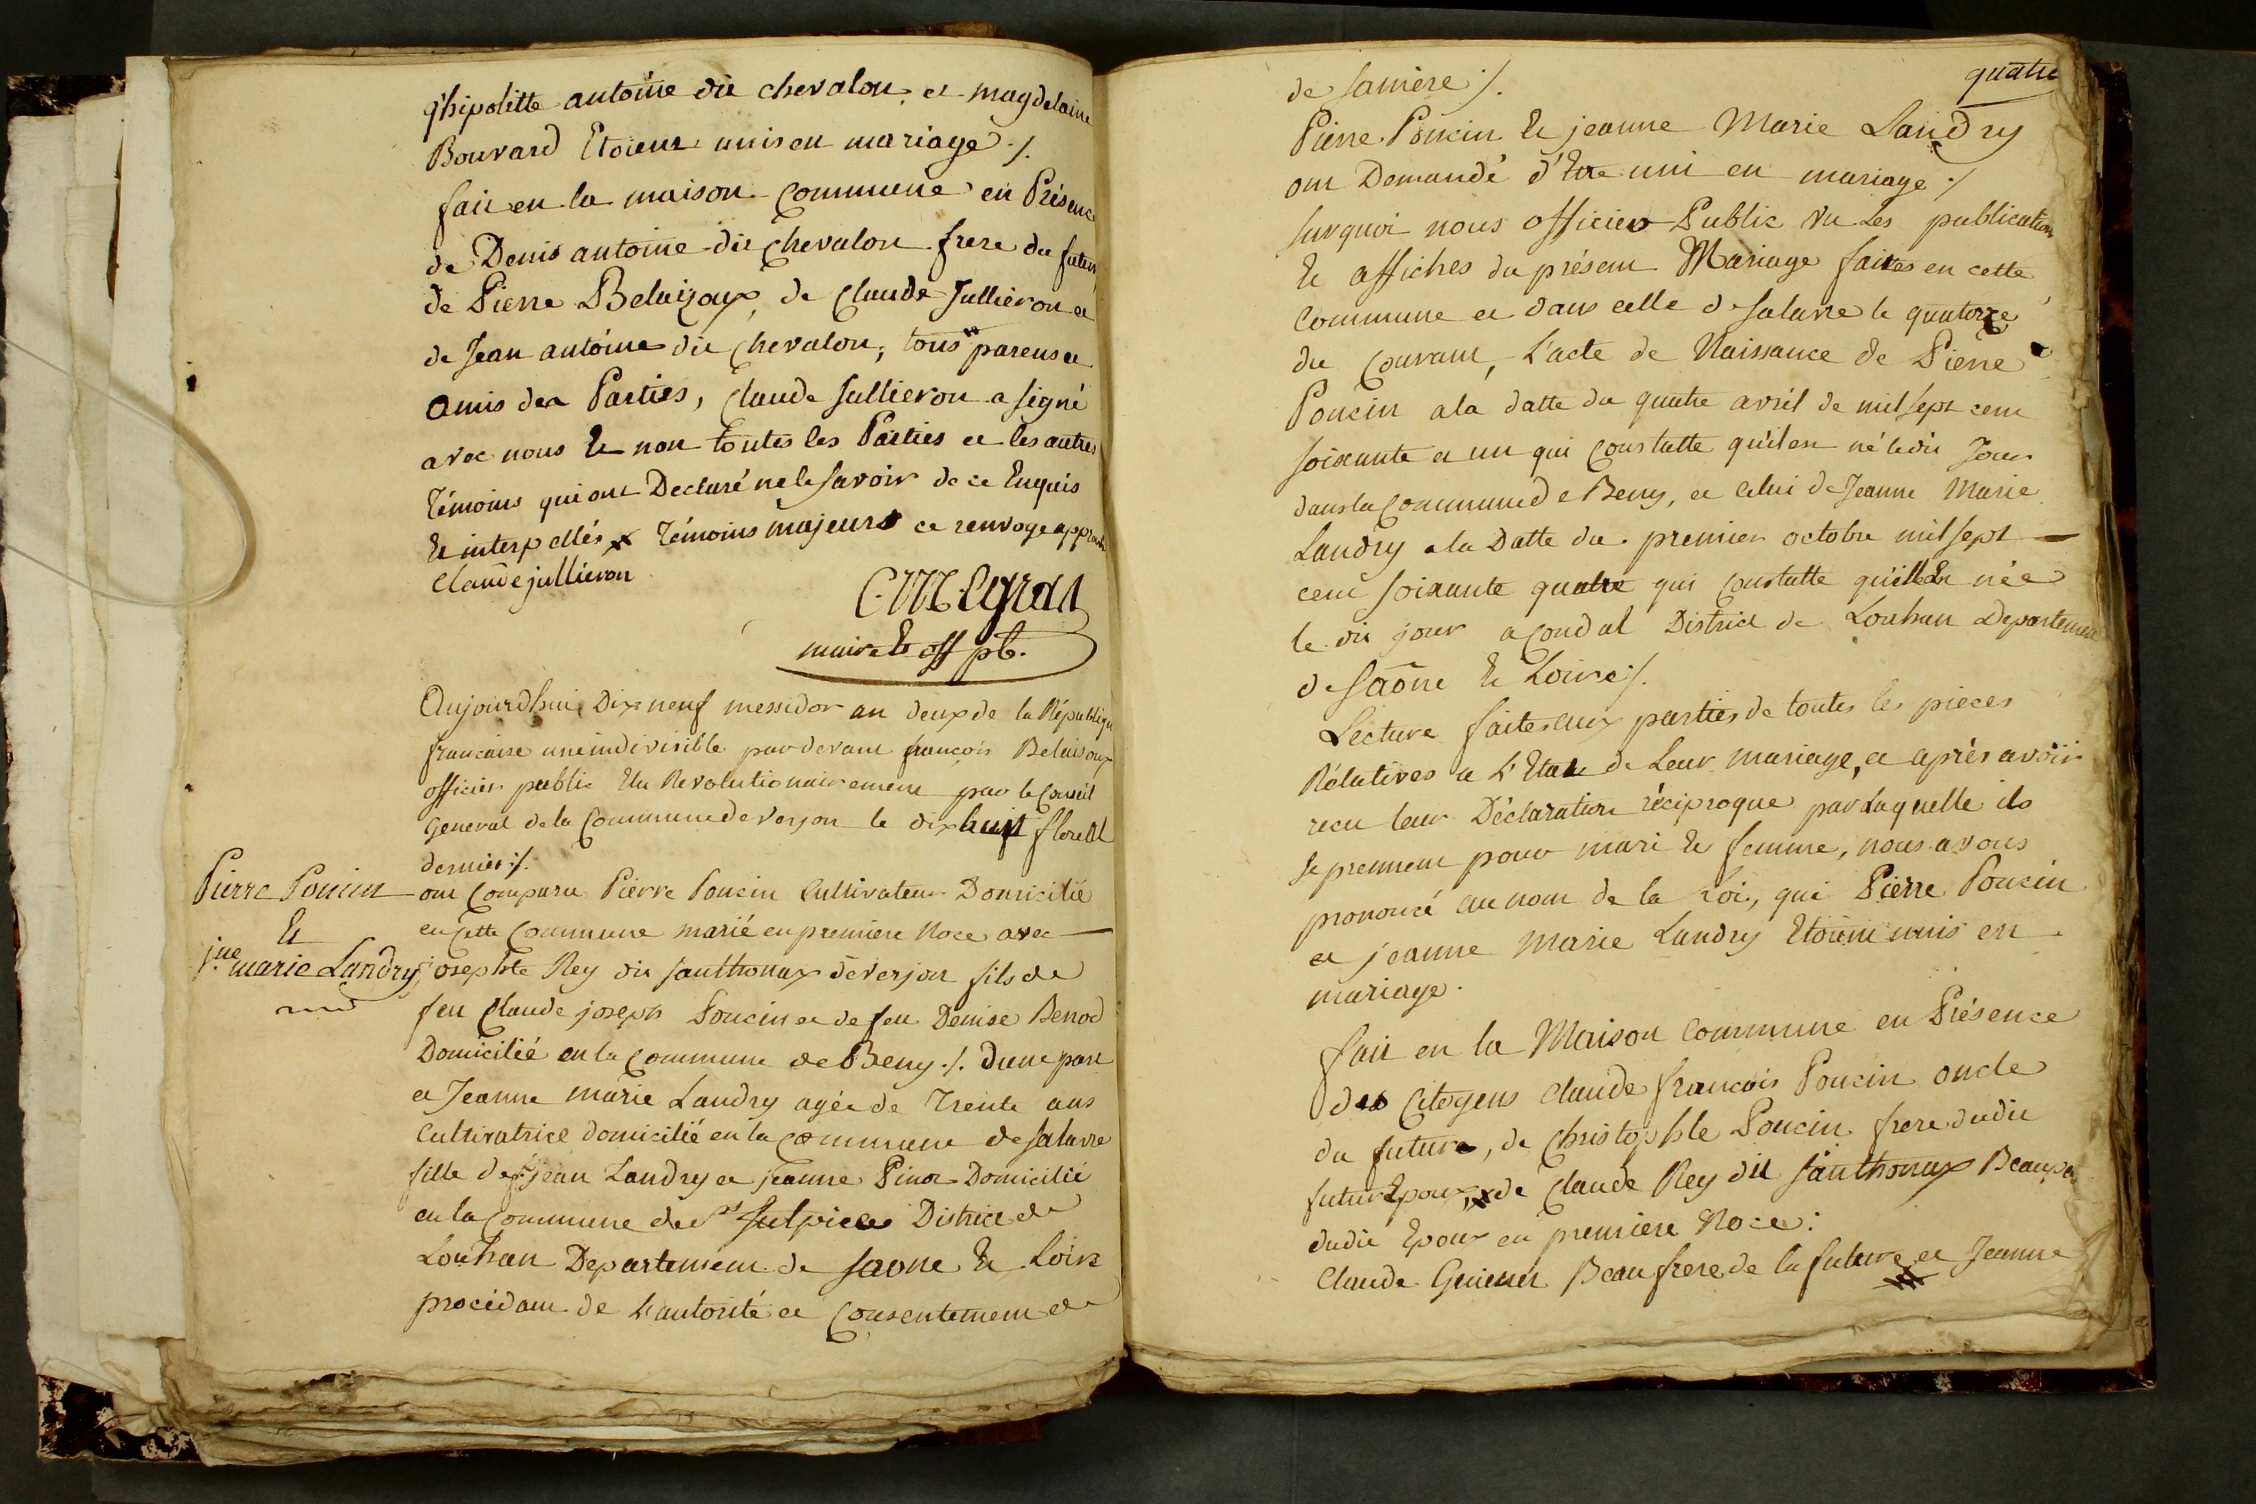 q'hipolitte antoine dit chevalon et magdelaine
Bouvard Etoient unis en mariage ./.
fait en la maison Commune en Présence
de Denis antoine dit Chevalon frere du futur,
de Pierre Belaizoux, de Claude Jullieron et
de Jean antoine dit Chevalon, tous x parens et
amis des Parties, Claude Jullieron a signé
avec nous Et non toutes les Parties et les autres
Témoins qui ont Declaré ne le savoir de ce Enquis
Et interpellés x Témoins majeurs ce renvoye approuvé
Claude jullieron
maire Et off pb.
Aujourdhui Dix neuf messidor an deux de la République
francaise une indivisible pardevant françois Belaisoux
officier public Elu Revolutionairement par le Conseil
General de la Commune de verjon le dix huit floreal
dernier ./.
Pierre Poncin
Et
j.ne marie Landry
ont Comparu Pierre Poncin Cultivateur Domicilié
en Cette Commune marié en premiere Noce avec
josephte Rey dit janthonax de verjon fils de
feu Claude joseph Poncin et de feu Denise Benod
Domicilié en la Commune de Beny ./. d'une part
et Jeanne marie Landry agée de Trente ans
Cultivatrice domicilié en la Commune de Salavre
fille de f. jean Landry et jeanne Pinot Domicilié
en la Commune de St Sulpice District de
Louhan Departement de Saone Et Loire
procedant de L'autorité et Consentement de
quatre
de sa mere ./.
Pierre Poncin Et jeanne Marie Landry
ont Demandé d'Etre uni en mariage ./
surquoi nous officier Public vu Les publications
Et affiches du présent Mariage faites en cette
Commune et dans celle de Salavre le quatorze
du Courant, L'acte de Naissance de Pierre
Poncin a la datte du quatre avril de mil sept cent
soixante et un qui Constatte qu'il est né ledit Jour
dans la Commune de Beny, et Celui de Jeanne Marie
Landry a la Datte du premier octobre mil sept
cent soixante quatre qui Constatte qu'elle Est née
le dit jour a Condal District de Louhan Departement
de Saône Et Loire ./.
Lecture faites aux parties de toutes les pieces
Rélatives a L'Etat de Leur mariage, et après avoir
recu leur Déclaration réciproque par Laquelle ils
se prennent pour mari Et femme, nous avons
prononcé au nom de la Loi, que Pierre Poncin
et jeanne Marie Landry Etoient unis en
mariage.
fait en la Maison Commune en Présence
des Citoyens Claude françois Poncin oncle
du future, de Christophle Poncin frere dudit
futur Epoux, x de Claude Rey dit janthonax Beaupere
dudit Epoux en premiere Noce:
Claude Beaufrere de la future et Jeanne